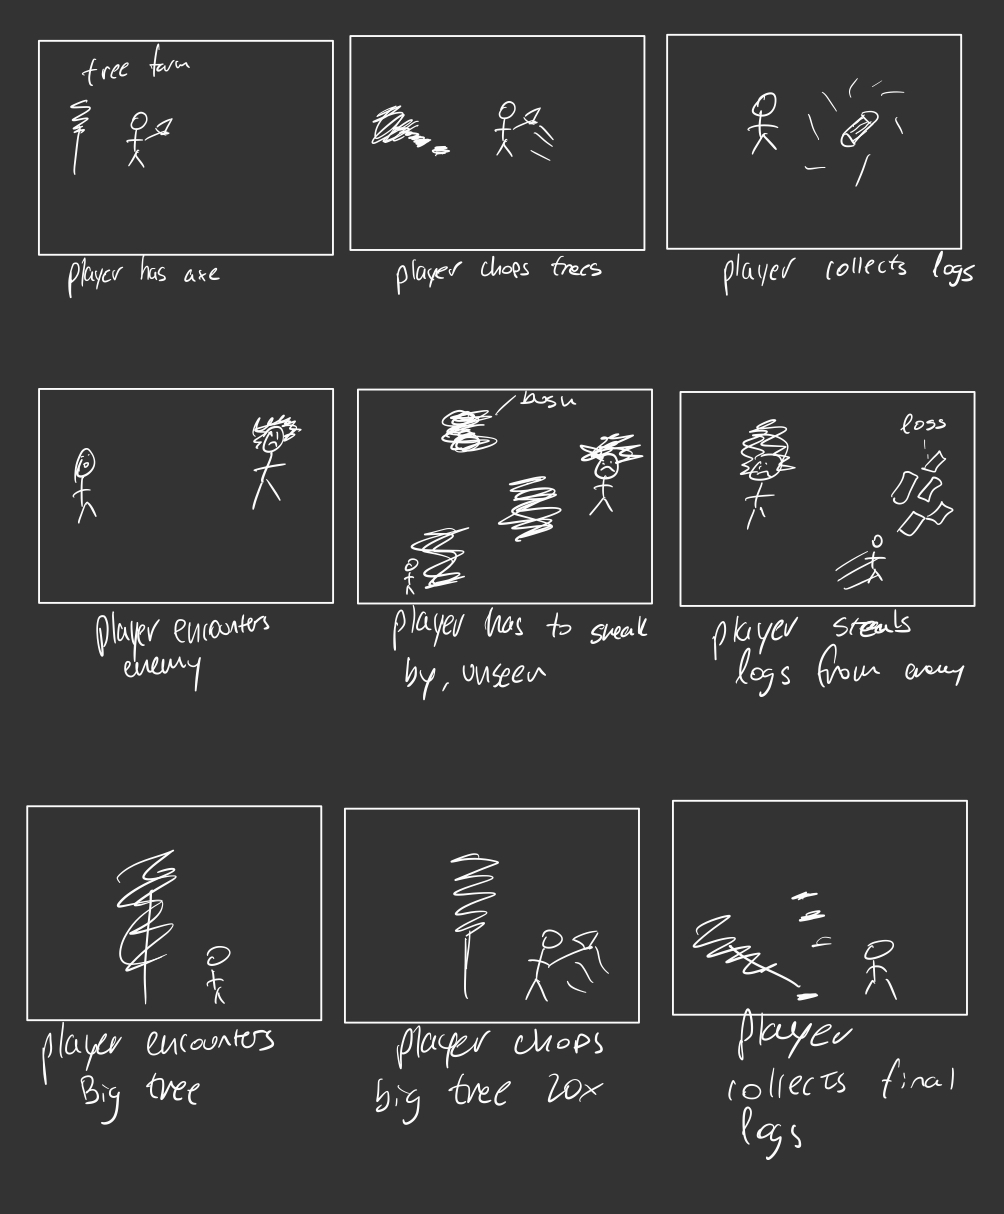 tree farm
player has axe
player chops trees
player collects logs
player encounters
enemy
bush
player has to sneak
by, unseen
logs
player steals
logs from enemy
player encounters
Big tree
player chops
big tree 20x
player
collects final
logs